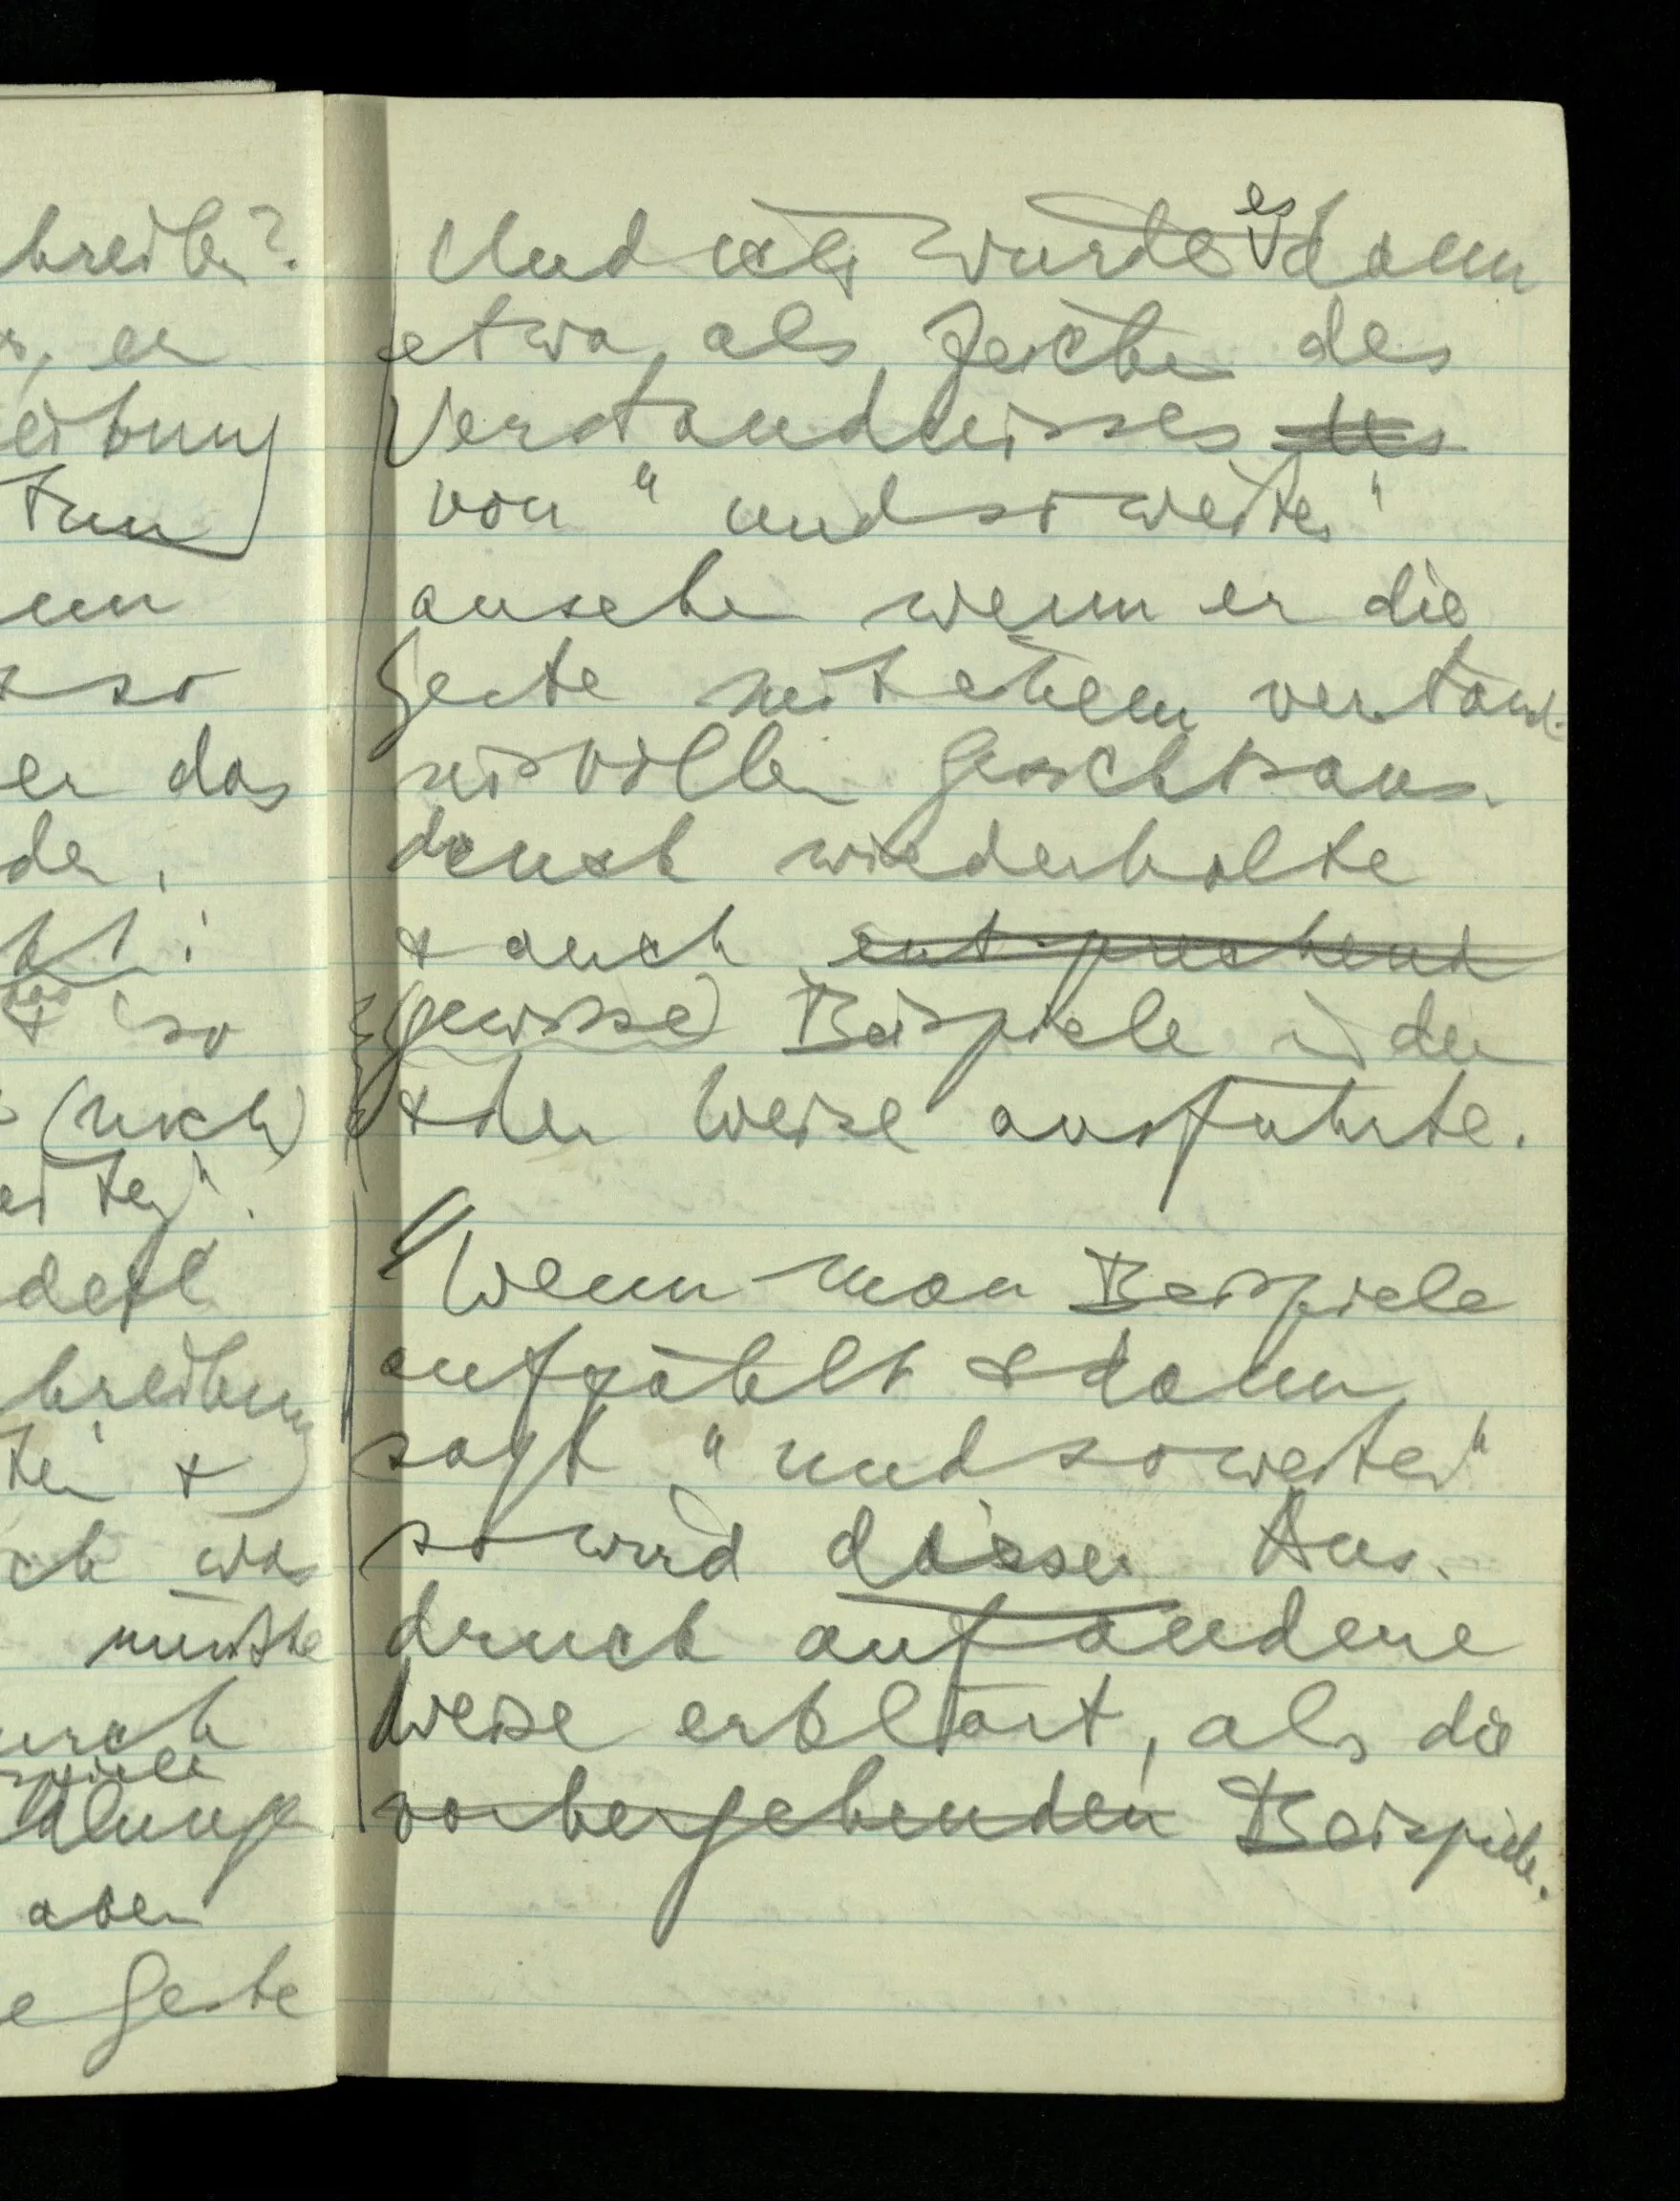 hreiben?
r, er
eibung
tun
nn
& so
er das
den,
so
(mich)
eiter".
dest
hreibung
ten &
ich was
müßte
urch
spiele
aber
e Geste
Und ich würde es dann
etwa als Zeichen des
Verständnisses des
von "und so weiter"
ansehen wenn er die
Geste mit einem verständ-
nisvollen Gesichtsaus-
druck wiederholte
& auch entsprechend
(gewisse) Beispiele in der
& der Weise ausführte.
Wenn man Beispiele
aufzählt & dann
sagt "und so weiter"
so wird dieser Aus-
druck auf andere
Weise erklärt, als die
vorhergehenden Beispiele.